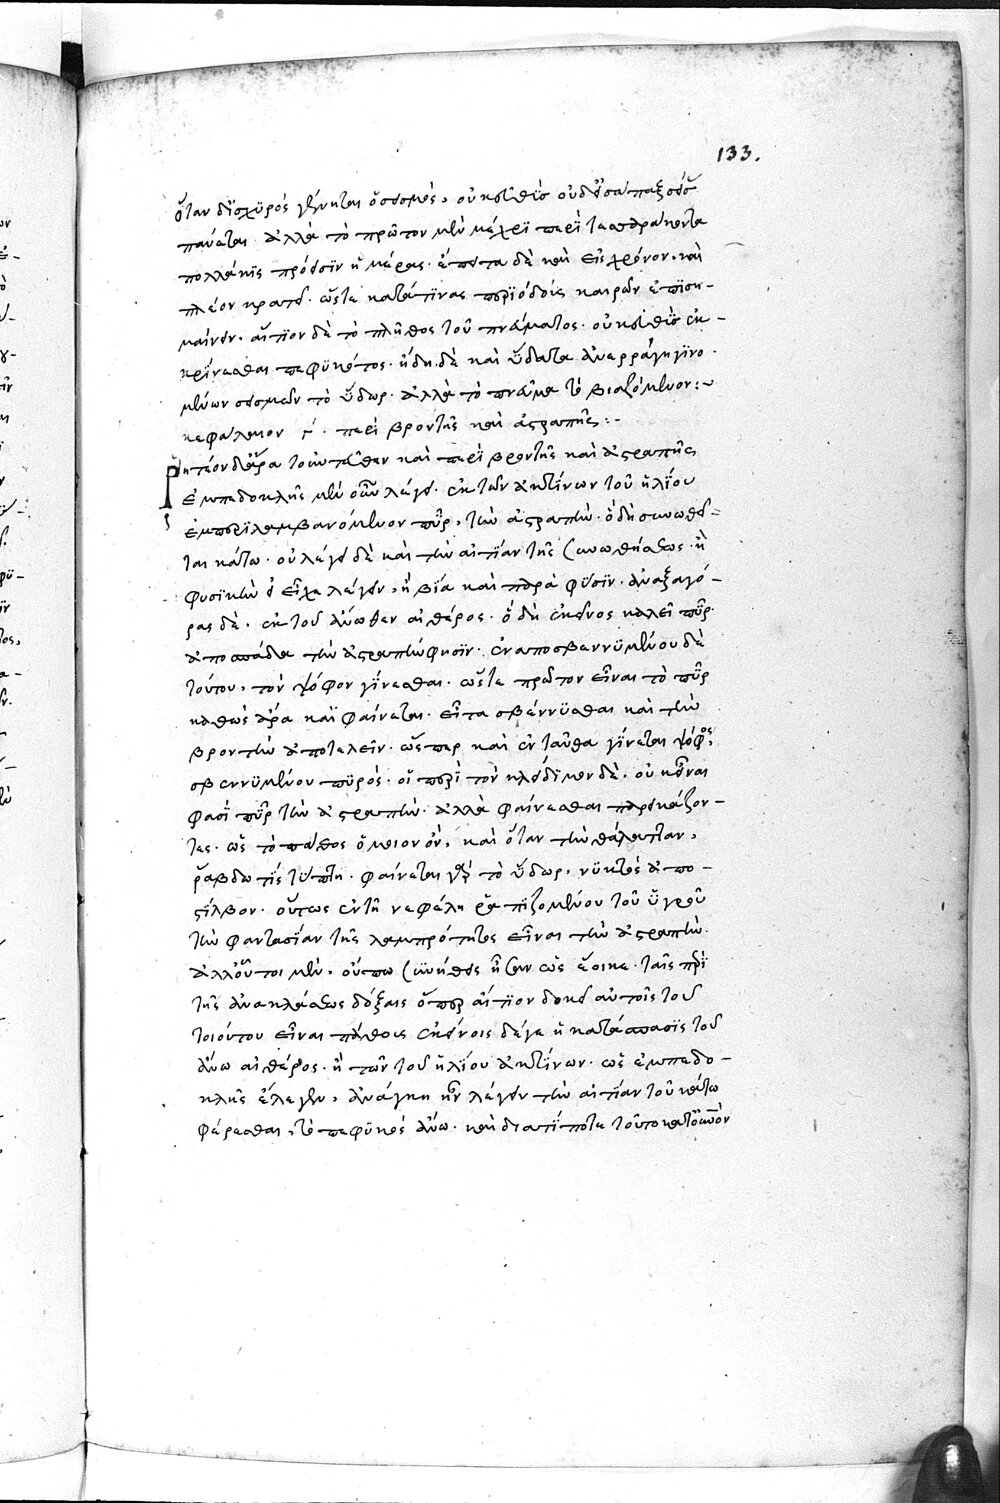 133.
ὅταν δ' ἰσχυρὸς γένηται ὁ σεισμὸς, οὐκ εὐθὺς οὐδ' εἰσάπαξ σεισ
παύεται ἀλλὰ τὸ πρῶτον μὲν μέχρι περὶ τεσσαράκοντα
πολλάκις πρόεισιν ἡμέρας. ἔπειτα δὲ καὶ εἰς χρόνον. καὶ
πλέον κρατεῖ. ὥστε κατά τινας περιόδους καιρῶν ἐπιση-
μαίνειν. αἴτιον δὲ τὸ πλῆθος τοῦ πνεύματος. οὐκ εὐθὺς ἐκ-
κρίνεσθαι πεφυκότος. ἤδη δὲ καὶ ὕδατα ἀνερράγη γινο-
μένων σεισμῶν τὸ ὕδωρ. ἀλλὰ τὸ πνεῦμα τὸ βιαζόμενον:~
κεφάλαιον . περὶ βροντῆς καὶ ἀστραπῆς:-
Ῥητέον δ' ἄρα τοὐντεῦθεν καὶ περὶ βροντῆς καὶ ἀστραπῆς
ἐμπεδοκλῆς μὲν οὖν λέγει. ἐκ τῶν ἀκτίνων τοῦ ἡλίου
ἐμπεριλαμβανόμενον πῦρ, τὴν ἀστραπὴν. ὃ δὴ συνωθεῖ-
ται κάτω. οὐ λέγει δὲ καὶ τὴν αἰτίαν τῆς συνωθήσεως. ἢ
φυσικὴν εἶχε λέγειν, ἢ βίᾳ καὶ παρὰ φύσιν. ἀναξαγό-
ρας δὲ. ἐκ τοῦ ἄνωθεν αἰθέρος. ὃ δὴ ἐκεῖνος καλεῖ πῦρ.
ἀποσπάδα τὴν ἀστραπὴν φησὶν. ἐναποσβεννυμένου δὲ
τούτου, τὸν ψόφον γίνεσθαι. ὥστε πρῶτον εἶναι τὸ πῦρ
καθὼς ἄρα καὶ φαίνεται. εἶτα σβέννυσθαι καὶ τὴν
βροντὴν ἀποτελεῖν. ὥσπερ καὶ ἐνταῦθα γίνεται ψόφος,
σβεννυμένου πυρός. οἱ περὶ τὸν κλείδημον δὲ. οὐκ εἶναι
φασὶ πῦρ τὴν ἀστραπὴν. ἀλλὰ φαίνεσθαι παρεικάζον-
τες. ὡς τὸ πάθος ὅμοιον ὂν, καὶ ὅταν τὴν θάλατταν,
ῥάβδω τίς τύπτη. φαίνεται γὰρ τὸ ὕδωρ, νυκτὸς ἀπο-
στίλβον. οὕτως ἐν τῇ νεφέλη ῥαπιζομένου τοῦ ὑγροῦ
τὴν φαντασίαν τῆς λαμπρότητος εἶναι τὴν ἀστραπὴν.
ἀλλ' οὗτοι μὲν. οὔπω συνήθεις ἦσαν ὡς ἔοικε. ταῖς περὶ
τῆς ἀνακλάσεως δόξαις ὅπερ αἴτιον δοκεῖ αὐτοῖς τοῦ
τοιούτου εἶναι πάθους ἐκείνοις δέγε ἡ κατάσπασις τοῦ
ἄνω αἰθέρος. ἢ τῶν τοῦ ἡλίου ἀκτίνων. ὡς ἐμπεδο-
κλῆς ἔλεγεν, ἀνάγκη ἦν λέγειν τὴν αἰτίαν τοῦ κάτω
φέρεσθαι, τὸ πεφυκὸς ἄνω. καὶ διατί ποτε τοῦτο κατὰ